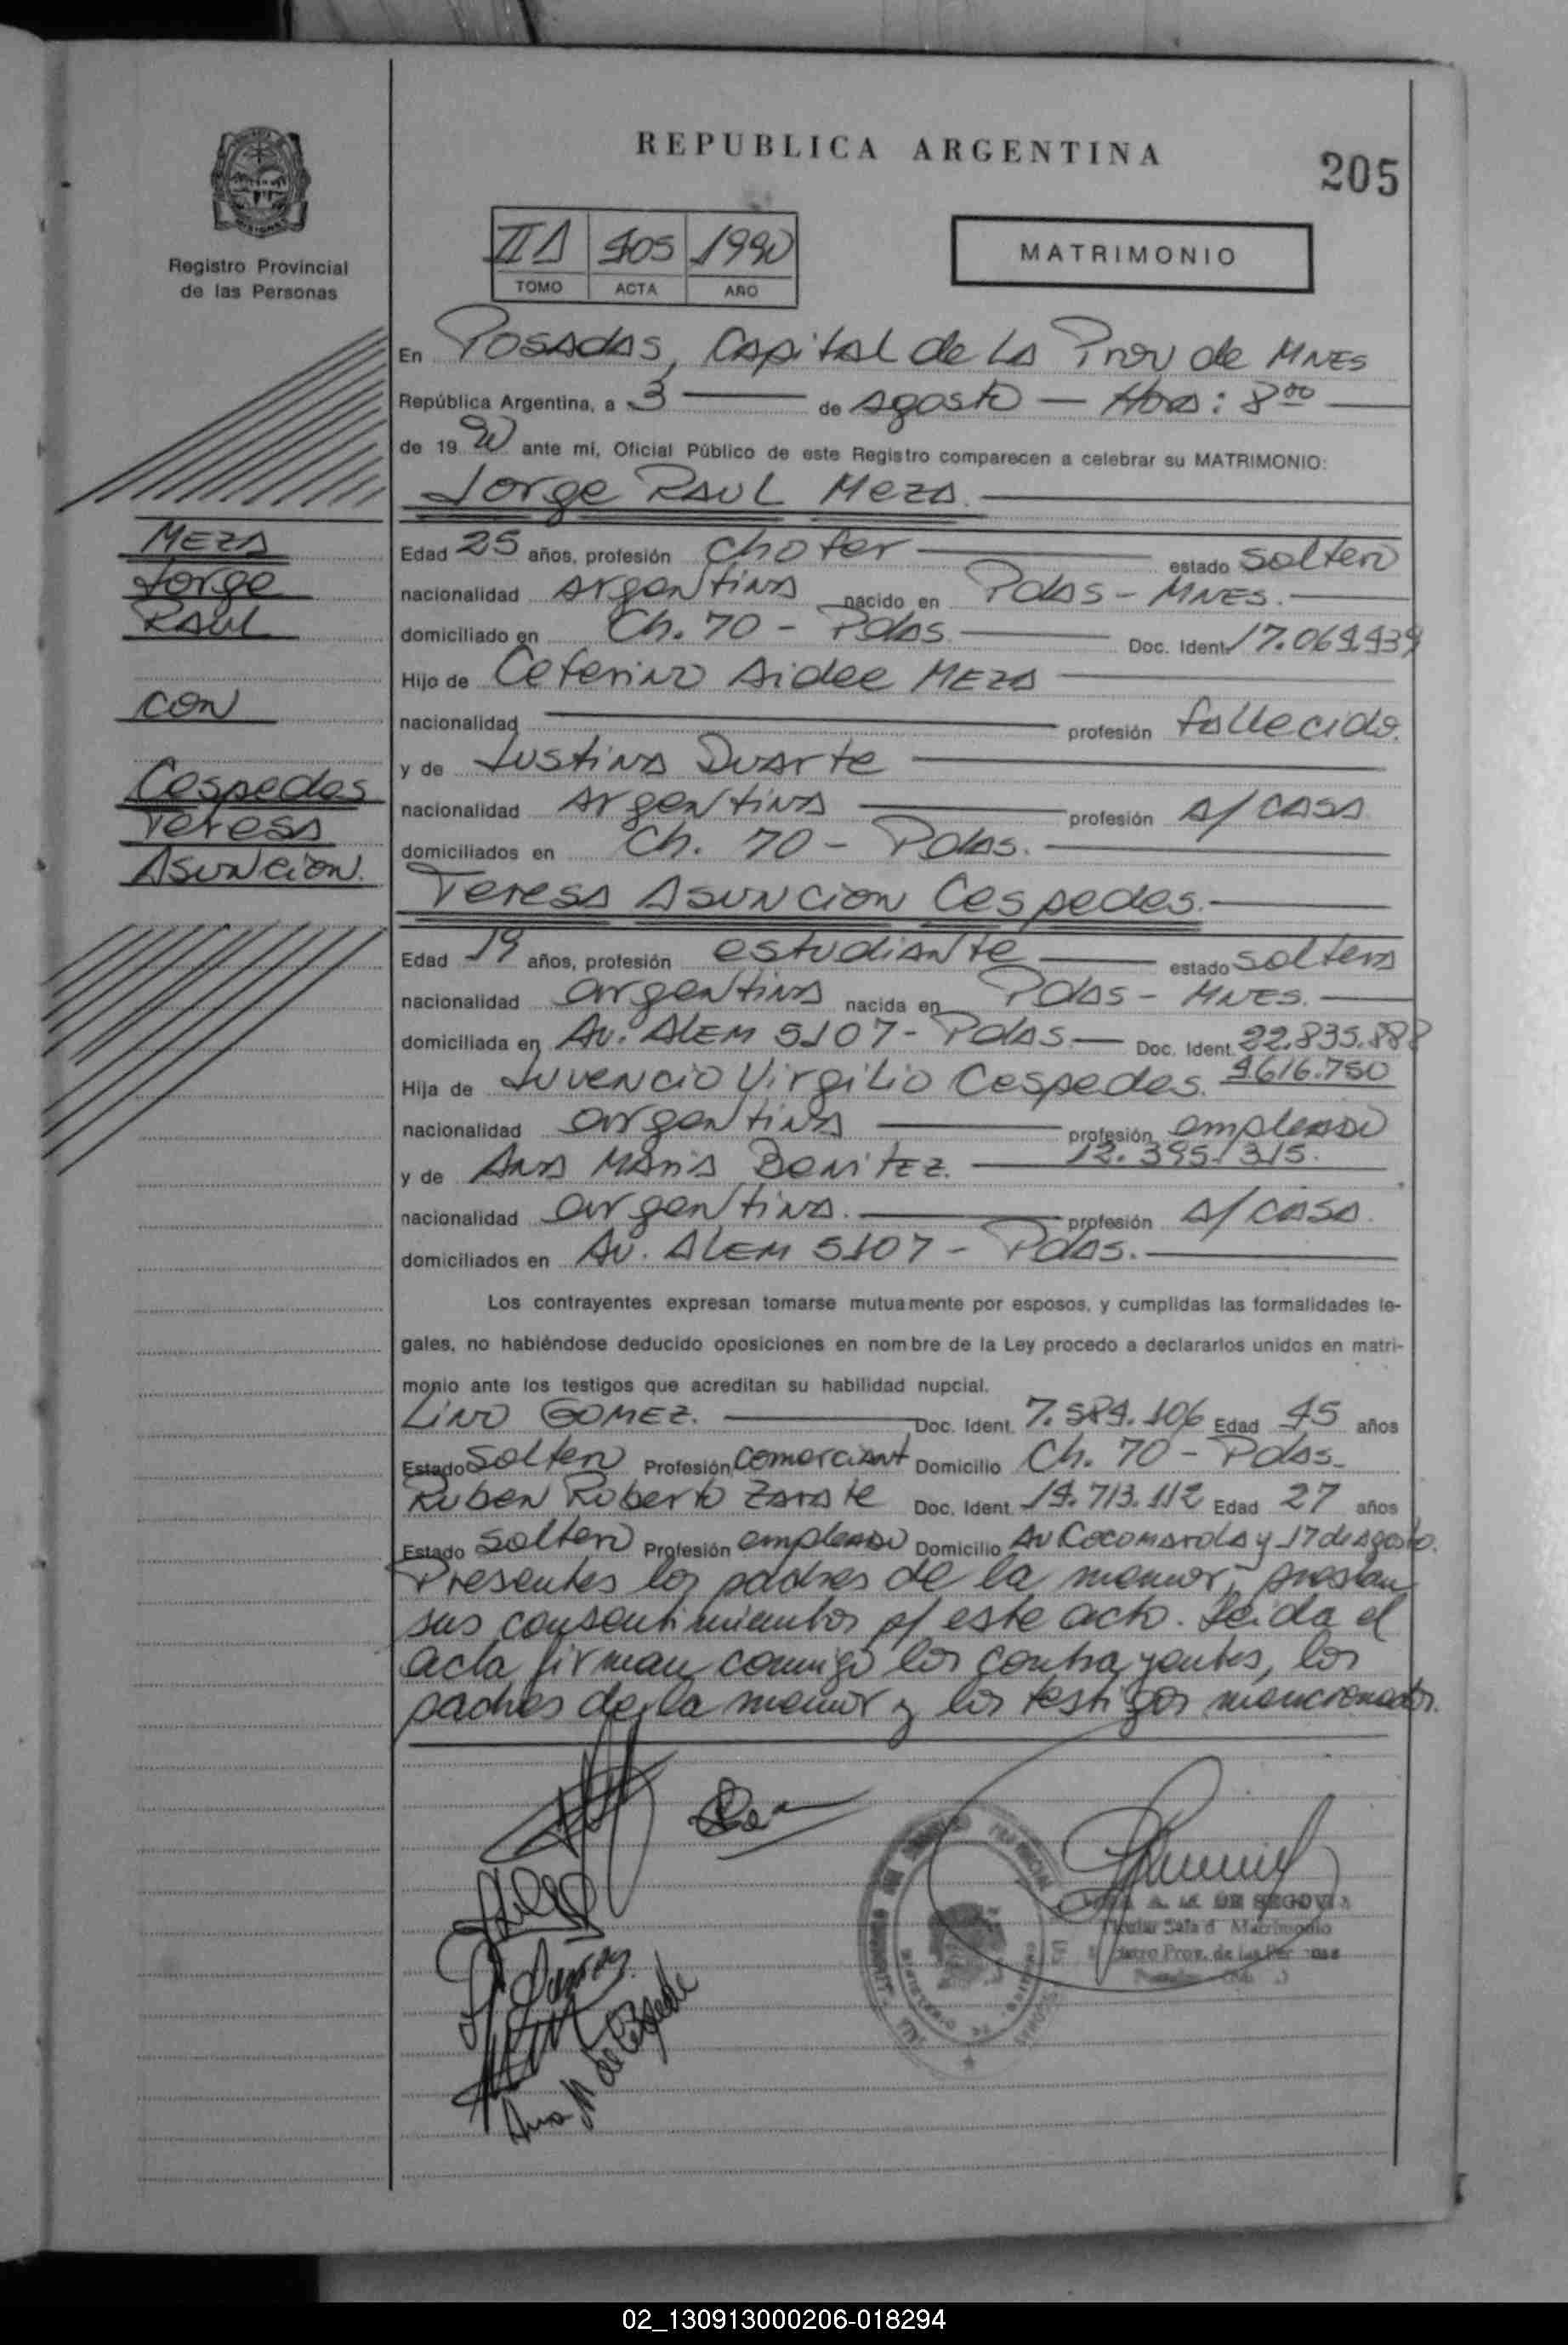 REPUBLICA ARGENTINA
205
Registro Provincial
de las Personas
II A 405 1990
TOMO ACTA AÑO
MATRIMONIO
En Posadas, Capital de la Prov de Mnes
República Argentina, a 3 de Agosto Hora: 8 00
de 19 90 ante mí, Oficial Público de este Registro comparecen a celebrar su MATRIMONIO:
Jorge Raul Meza.
Meza
Jorge
Raul
con
Cespedes
Teresa
Asuncion.
Edad 25 años, profesión chofer estado soltero
nacionalidad argentina nacido en Pdas - Mnes.
domiciliado en Ch. 70 - Pdas. Doc. Ident. 17.064.939
Hijo de Ceferino Aidee Meza
nacionalidad profesión fallecido.
y de Justina Duarte
nacionalidad argentina profesión a/ casa
domiciliados en Ch. 70 - Pdas.
Teresa Asuncion Cespedes.
Edad 19 años, profesión estudiante estado soltera
nacionalidad argentina nacida en Pdas - Mnes.
domiciliada en Av. Alem 5107 - Pdas. Doc. Ident. 22.835.888
Hija de Juvencio Virgilio Cespedes. 4616.750
nacionalidad argentina profesión empleado
y de Ana Maria Benitez. 12.395.315.
nacionalidad argentina. profesión a/ casa.
domiciliados en Av. Alem 5107 - Pdas.
Los contrayentes expresan tomarse mutuamente por esposos, y cumplidas las formalidades le-
gales, no habiéndose deducido oposiciones en nombre de la Ley procedo a declararlos unidos en matri-
monio ante los testigos que acreditan su habilidad nupcial.
Lino Gomez. Doc. Ident. 7.584.106 Edad 45 años
Estado soltero Profesión comerciant Domicilio Ch. 70 - Pdas.
Ruben Roberto Zarate Doc. Ident. 14.713.112 Edad 27 años
Estado soltero Profesión empleado Domicilio Av Cocomarola y 17 de agosto.
Presentes los padres de la menor, prestan
sus consentimientos p/ este acto. Leída el
acta firman conmigo los contrayentes, los
padres de la menor y los testigos mencionados.
Ana M de Cespede
A. M. DE SEGOVIA
Titular Sala d Matrimonio
02_130913000206-018294